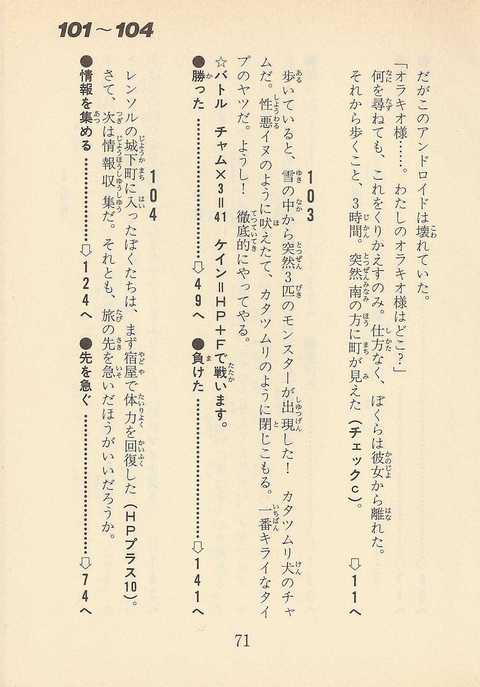 101～104
だがこのアンドロイドは壊れていた。
「オラキオ様……。わたしのオラキオ様はどこ？」
何を尋ねても、これをくりかえすのみ。仕方なく、ぼくらは彼女から離れた。
それから歩くこと、3時間。突然南の方に町が見えた（チェックc）。
⇨11へ
103
歩いていると、雪の中から突然3匹のモンスターが出現した！　カタツムリ犬のチャ
ムだ。性悪イヌのように吠えたて、カタツムリのように閉じこもる。一番キライなタイ
プのヤツだ。ようし！　徹底的にやってやる。
☆バトル　チャム×3＝41　ケイン＝HP＋Fで戦います。
●勝った…………⇨49へ　●負けた…………⇨141へ
104
レンソルの城下町に入ったぼくたちは、まず宿屋で体力を回復した（HPプラス10）。
さて、次は情報収集だ。それとも、旅の先を急いだほうがいいだろうか。
●情報を集める…………⇨124へ　●先を急ぐ…………⇨74へ
71